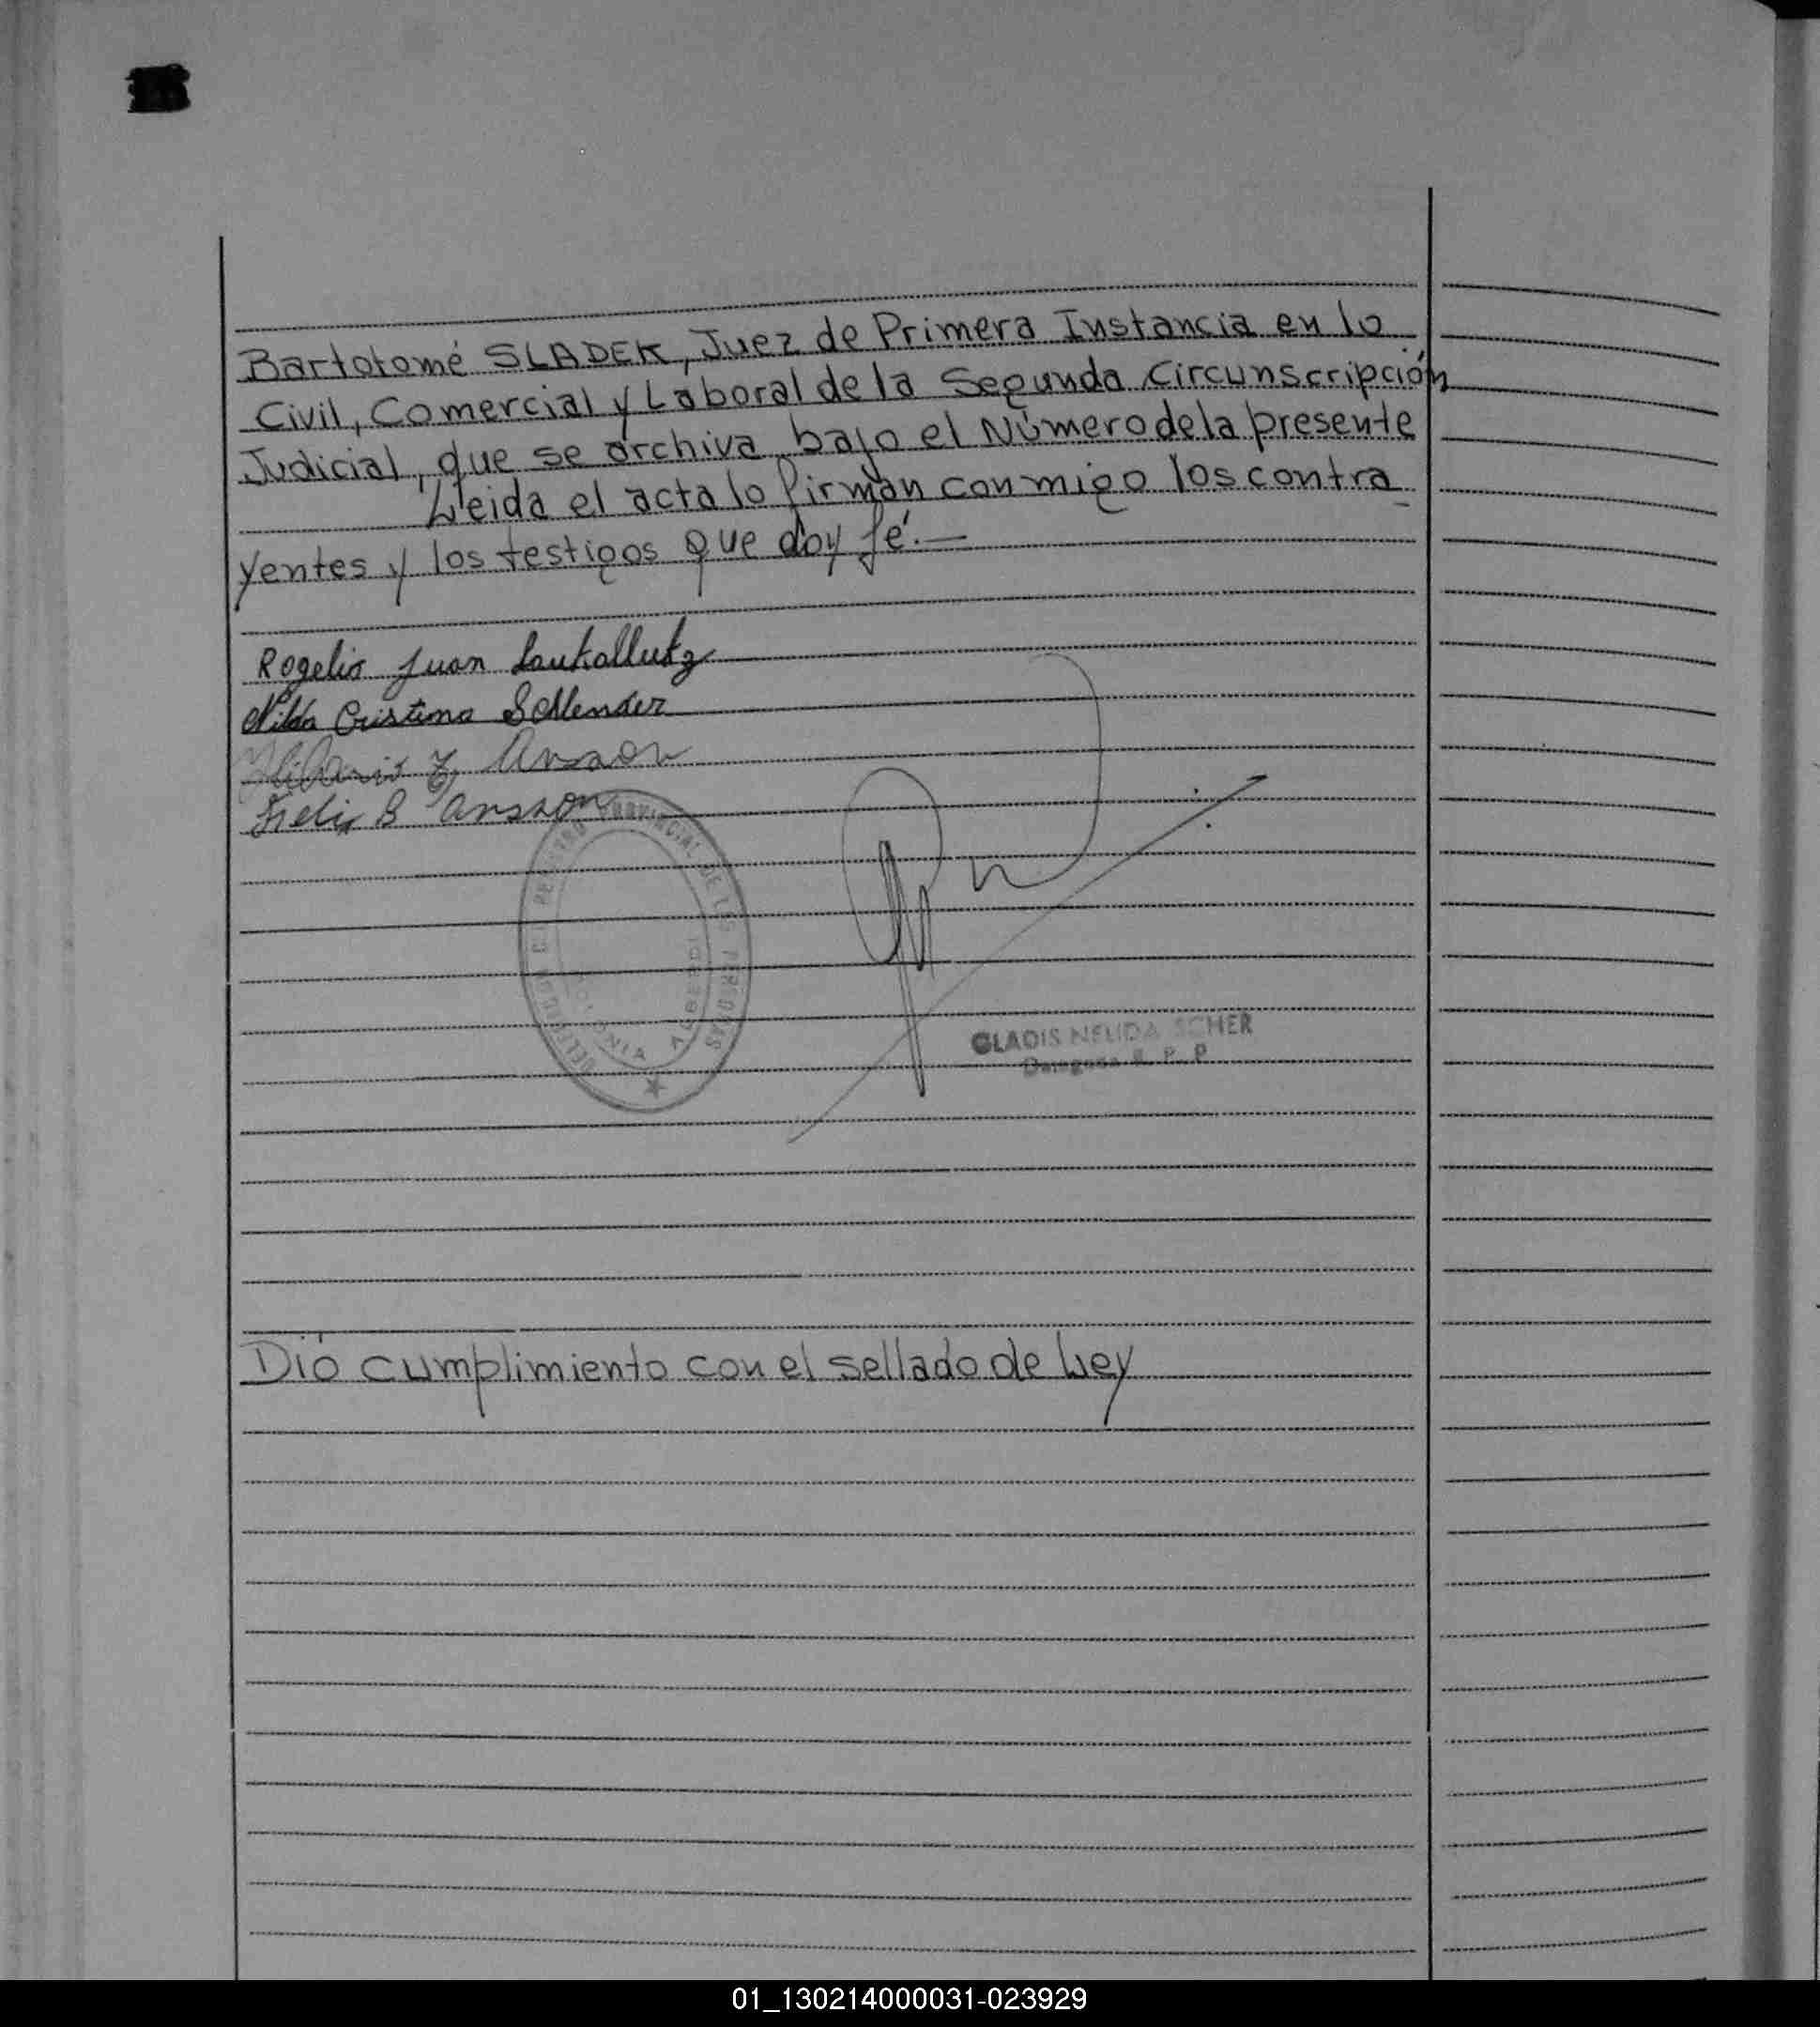 Bartolomé SLADEK, Juez de Primera Instancia en lo
Civil, Comercial y Laboral de la Segunda Circunscripción
Judicial, que se archiva bajo el Número de la presente
Leida el acta lo firman conmigo los contra
yentes y los testigos que doy fé.—
Rogelio Juan
Nilda Cristina
Ansson
Felix B Ansson
REGISTRO PROVINCIAL DE LAS PERSONAS
GLADIS NELIDA SCHER
R. P. P.
Dió cumplimiento con el sellado de Ley
01_130214000031-023929